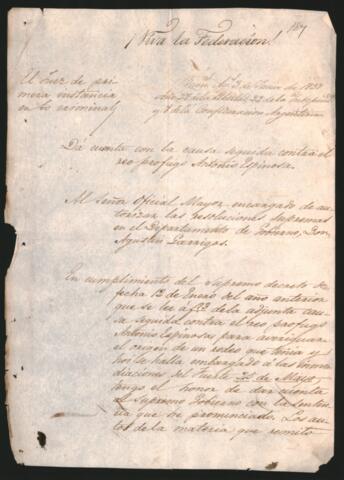 ¡Viva la Federacion!
El Juez de pri
mera instancia
en lo criminal
Año 28 de la Libertad, 22 de la Independ
y 8 de la Confederacion Argentina
Da cuenta con la causa seguida contra el
reo profugo Antonio Espinosa.
Al Señor Oficial Mayor encargado de au
torizar las resoluciones supremas
en el Departamento de Gobierno, Don
Agustin Garrigos.
En cumplimiento del Supremo decreto de
fecha 12 de Enero del año anterior
que se lee a f. de la adjunta cau
sa seguida contra el reo profugo
Antonio Espinosa para averiguar
el origen de un que tenia y
se halla embargado á las inme
diaciones del Fuerte 25 de Mayo,
tengo el honor de dar cuenta
al Supremo Gobierno con la senten
cia que he pronunciado. Los au
tos de la materia que remito